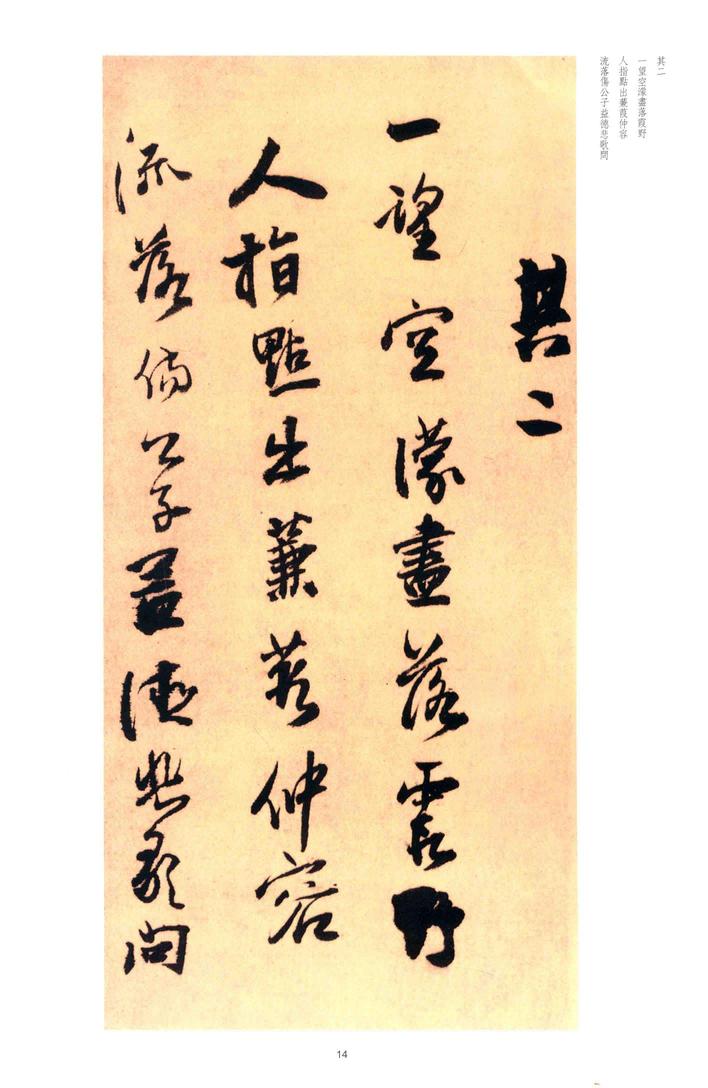 其二
一望空濛盡落霞野
人指點出蒹葭仲容
流落傷公子益德悲歌問
其二
一望空濛盡落霞野
人指點出蒹葭仲容
流落傷公子益德悲歌問
14